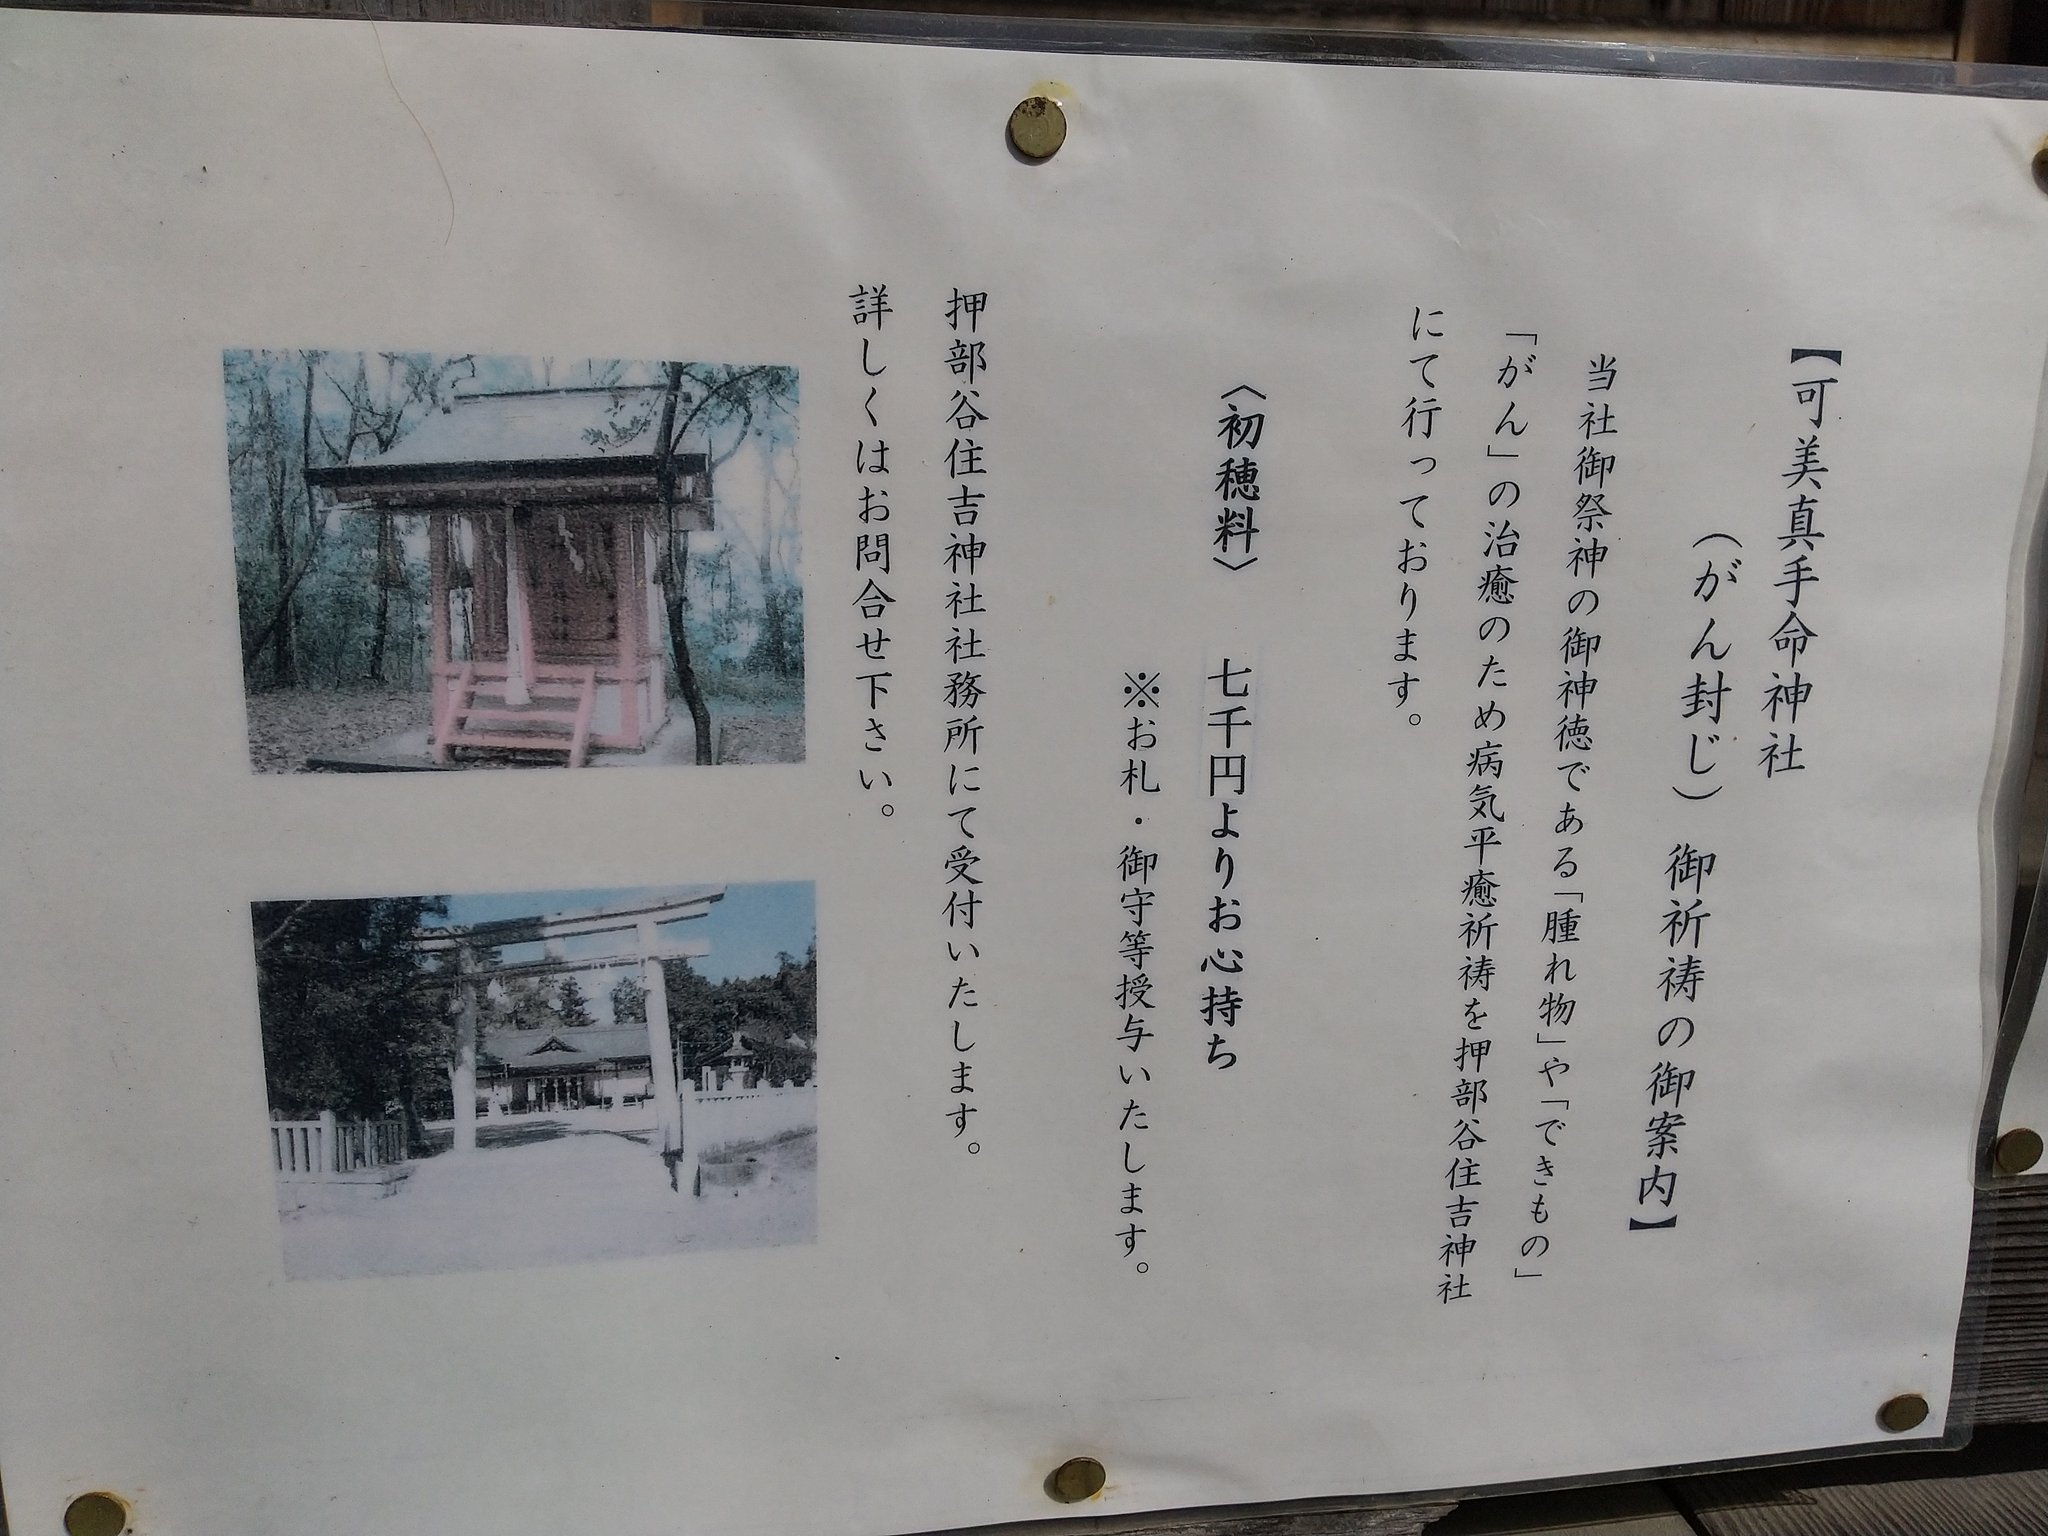 【可美真手命神社
（がん封じ）御祈祷の御案内】
当社御祭神の御神徳である「腫れ物」や「できもの」
「がん」の治癒のため病気平癒祈祷を押部谷住吉神社
にて行っております。
〈初穂料〉 七千円よりお心持ち
※お札・御守等授与いたします。
押部谷住吉神社社務所にて受付いたします。
詳しくはお問合せ下さい。